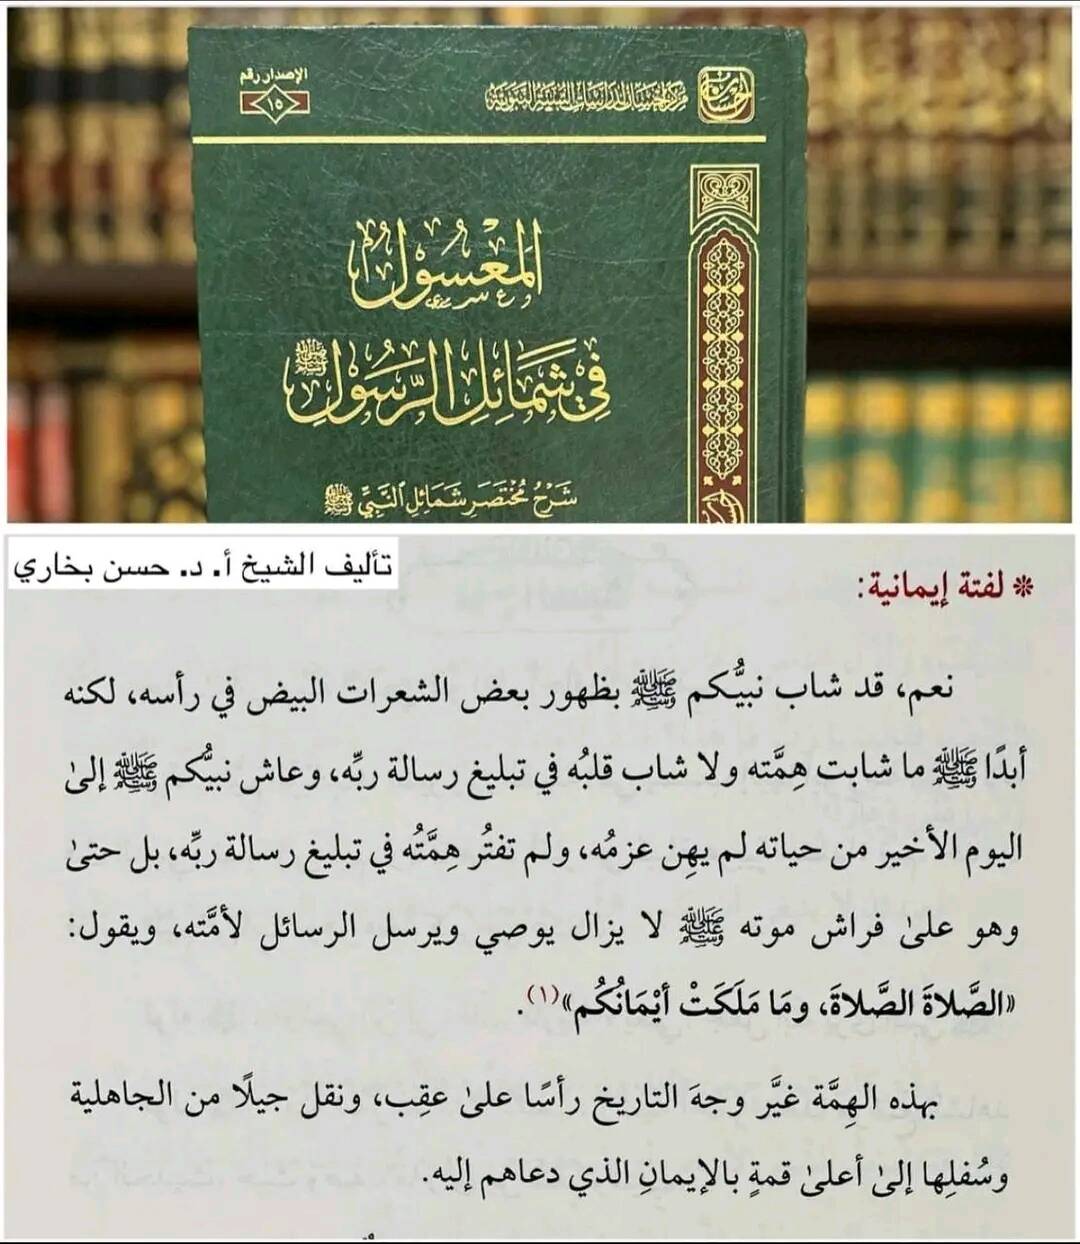 الإصدار رقم
١٥
مركز إحسان لدراسات السنة النبوية
إحسان
المَعْسُولُ
فِي شَمَائِلِ الرَّسُولِ ﷺ
شَرْحُ مُخْتَصَرِ شَمَائِلِ النَّبِيِّ ﷺ
تأليف الشيخ أ. د. حسن بخاري
* لفتة إيمانية:
نعم، قد شاب نبيُّكم ﷺ بظهور بعض الشعرات البيض في رأسه، لكنه
أبدًا ﷺ ما شابت هِمَّته ولا شاب قلبُه في تبليغ رسالة ربِّه، وعاش نبيُّكم ﷺ إلىٰ
اليوم الأخير من حياته لم يهِن عزمُه، ولم تفتُر هِمَّتُه في تبليغ رسالة ربِّه، بل حتىٰ
وهو علىٰ فراش موته ﷺ لا يزال يوصي ويرسل الرسائل لأمَّته، ويقول:
«الصَّلاةَ الصَّلاةَ، ومَا مَلَكَتْ أيْمَانُكُم»(١).
بهذه الهِمَّة غيَّر وجهَ التاريخ رأسًا علىٰ عقِب، ونقل جيلًا من الجاهلية
وسُفلِها إلىٰ أعلىٰ قمةٍ بالإيمانِ الذي دعاهم إليه.